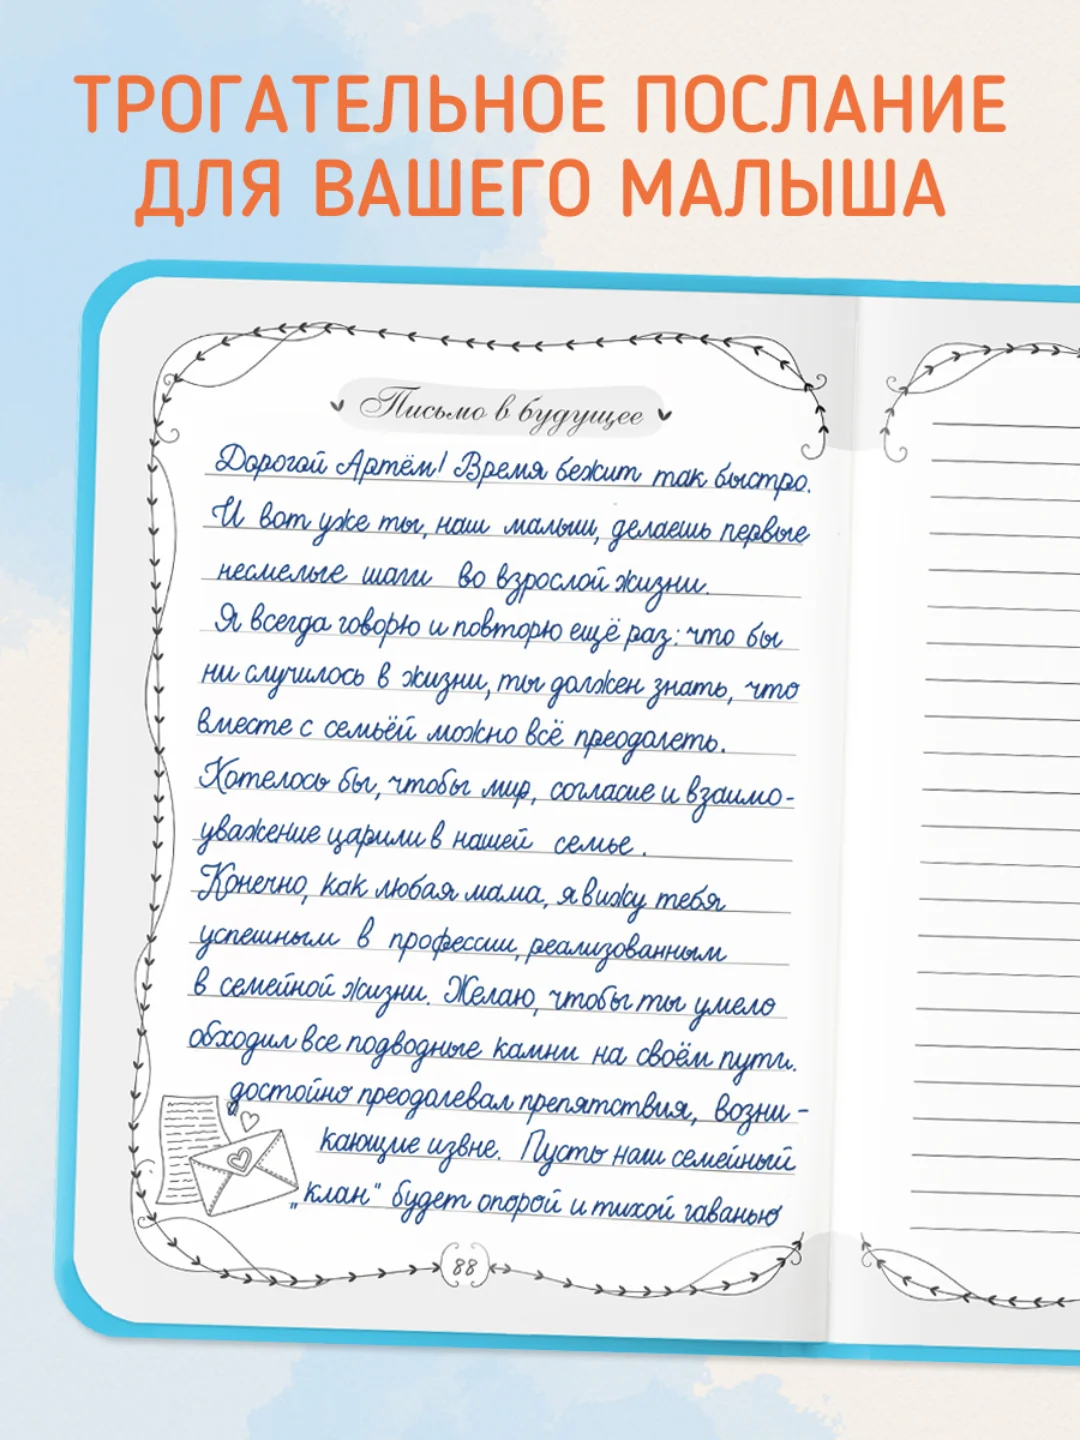 ТРОГАТЕЛЬНОЕ ПОСЛАНИЕ
ДЛЯ ВАШЕГО МАЛЫША
Письмо в будущее
Дорогой Артём! Время бежит так быстро.
И вот уже ты, наш малыш, делаешь первые
несмелые шаги во взрослой жизни.
Я всегда говорю и повторю ещё раз: что бы
ни случилось в жизни, ты должен знать, что
вместе с семьёй можно всё преодолеть.
Хотелось бы, чтобы мир, согласие и взаимо-
уважение царили в нашей семье.
Конечно, как любая мама, я вижу тебя
успешным в профессии, реализованным
в семейной жизни. Желаю, чтобы ты умело
обходил все подводные камни на своём пути.
достойно преодолевал препятствия, возни-
кающие извне. Пусть наш семейный
„клан" будет опорой и тихой гаванью
88